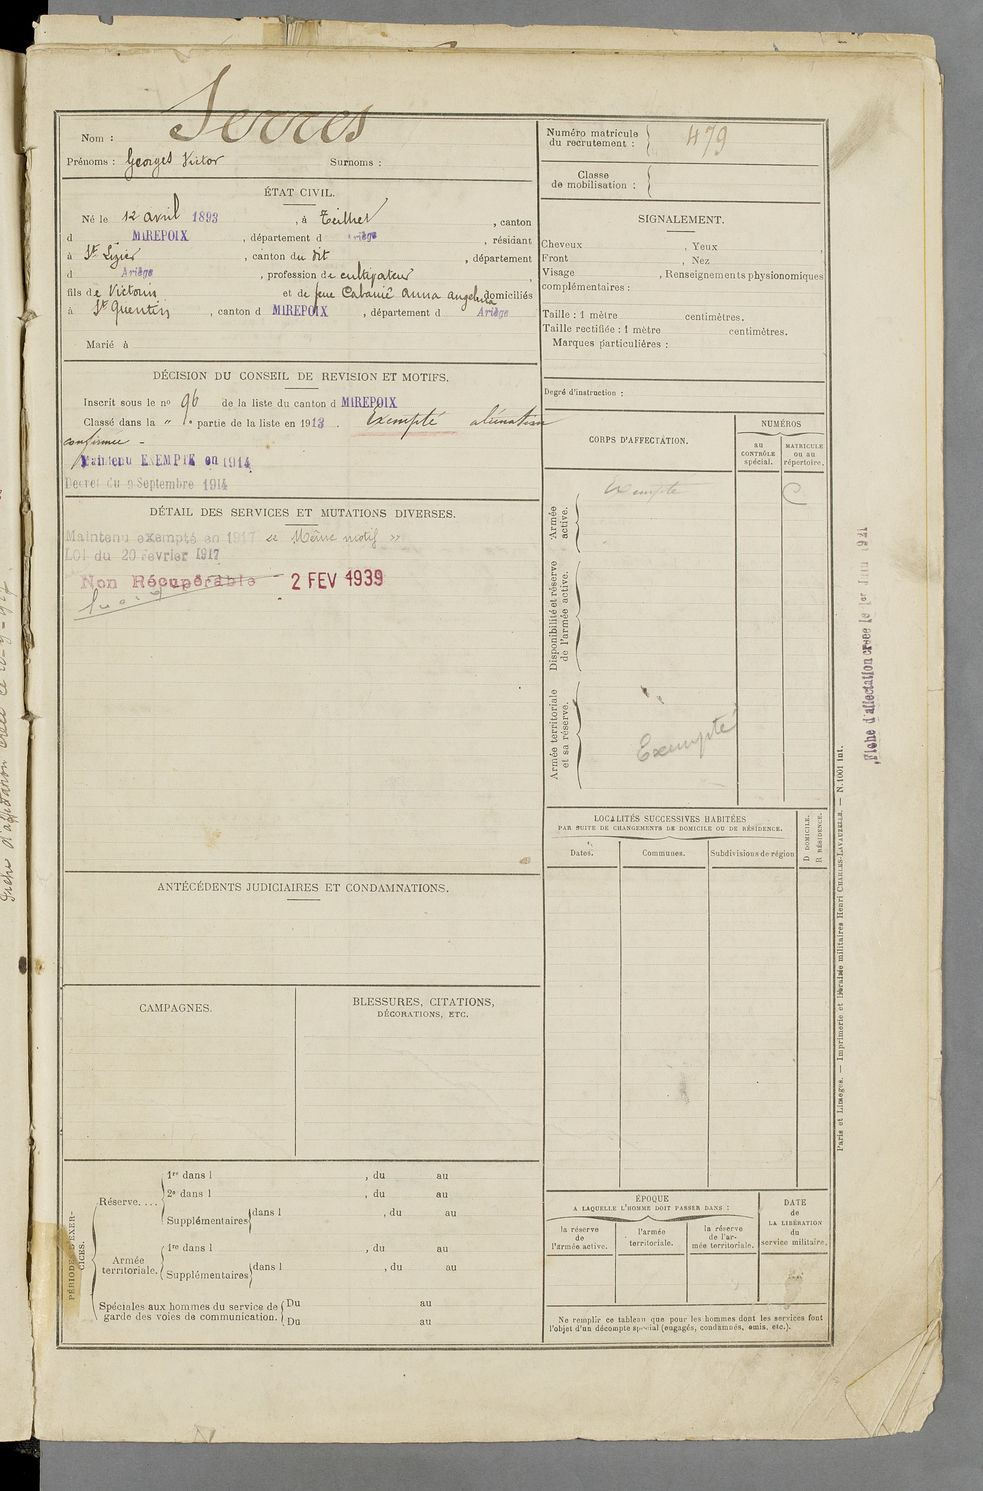 Nom : Serres
Prénoms : Georges Victor Surnoms :
ÉTAT CIVIL.
Né le 12 avril 1893, à Teilhet, canton
d MIREPOIX, département d Ariège, résidant
à St Lizier, canton du dit, département
d Ariège, profession de cultivateur,
fils de Victorin et de feue Cabanié Anna Angelina domiciliés
à St Quentin, canton d MIREPOIX, département d Ariège
Marié à
DÉCISION DU CONSEIL DE REVISION ET MOTIFS.
Inscrit sous le no 96 de la liste du canton d MIREPOIX
Classé dans la " 1e partie de la liste en 1913. Exempté aliénation
confirmée -
Maintenu EXEMPTÉ en 1914
Décret du 9 Septembre 1914
DÉTAIL DES SERVICES ET MUTATIONS DIVERSES.
Maintenu exempté en 1917 « Même motif »
LOI du 20 Février 1917
Non Récupérable - 2 FEV 1939
ANTÉCÉDENTS JUDICIAIRES ET CONDAMNATIONS.
CAMPAGNES.
BLESSURES, CITATIONS,
DÉCORATIONS, ETC.
PÉRIODES D'EXER-
CICES.
Réserve....
1re dans l , du au
2e dans l , du au
Supplémentaires dans l , du au
Armée
territoriale.
1re dans l , du au
Supplémentaires dans l , du au
Spéciales aux hommes du service de
garde des voies de communication.
Du au
Du au
Numéro matricule
du recrutement : 479
Classe
de mobilisation :
SIGNALEMENT.
Cheveux , Yeux ,
Front , Nez
Visage , Renseignements physionomiques
complémentaires :
Taille : 1 mètre centimètres.
Taille rectifiée : 1 mètre centimètres.
Marques particulières :
Degré d'instruction :
CORPS D'AFFECTATION.
NUMÉROS
au
CONTRÔLE
spécial.
MATRICULE
ou au
répertoire.
Armée
active.
Exempté
Disponibilité et réserve
de l'armée active.
Armée territoriale
et sa réserve.
Exempté
LOCALITÉS SUCCESSIVES HABITÉES
PAR SUITE DE CHANGEMENTS DE DOMICILE OU DE RÉSIDENCE.
D DOMICILE.
R RÉSIDENCE.
Dates.
Communes.
Subdivisions de région
ÉPOQUE
A LAQUELLE L'HOMME DOIT PASSER DANS :
la réserve
de
l'armée active.
l'armée
territoriale.
la réserve
de l'ar-
mée territoriale.
DATE
de
LA LIBÉRATION
du
service militaire.
Ne remplir ce tableau que pour les hommes dont les services font
l'objet d'un décompte spécial (engagés, condamnés, omis, etc.).
Paris et Limoges. — Imprimerie et librairie militaires Henri CHARLES-LAVAUZELLE. — N. 1001 int.
Fiche d'affectation créée le 1er Juin 1921